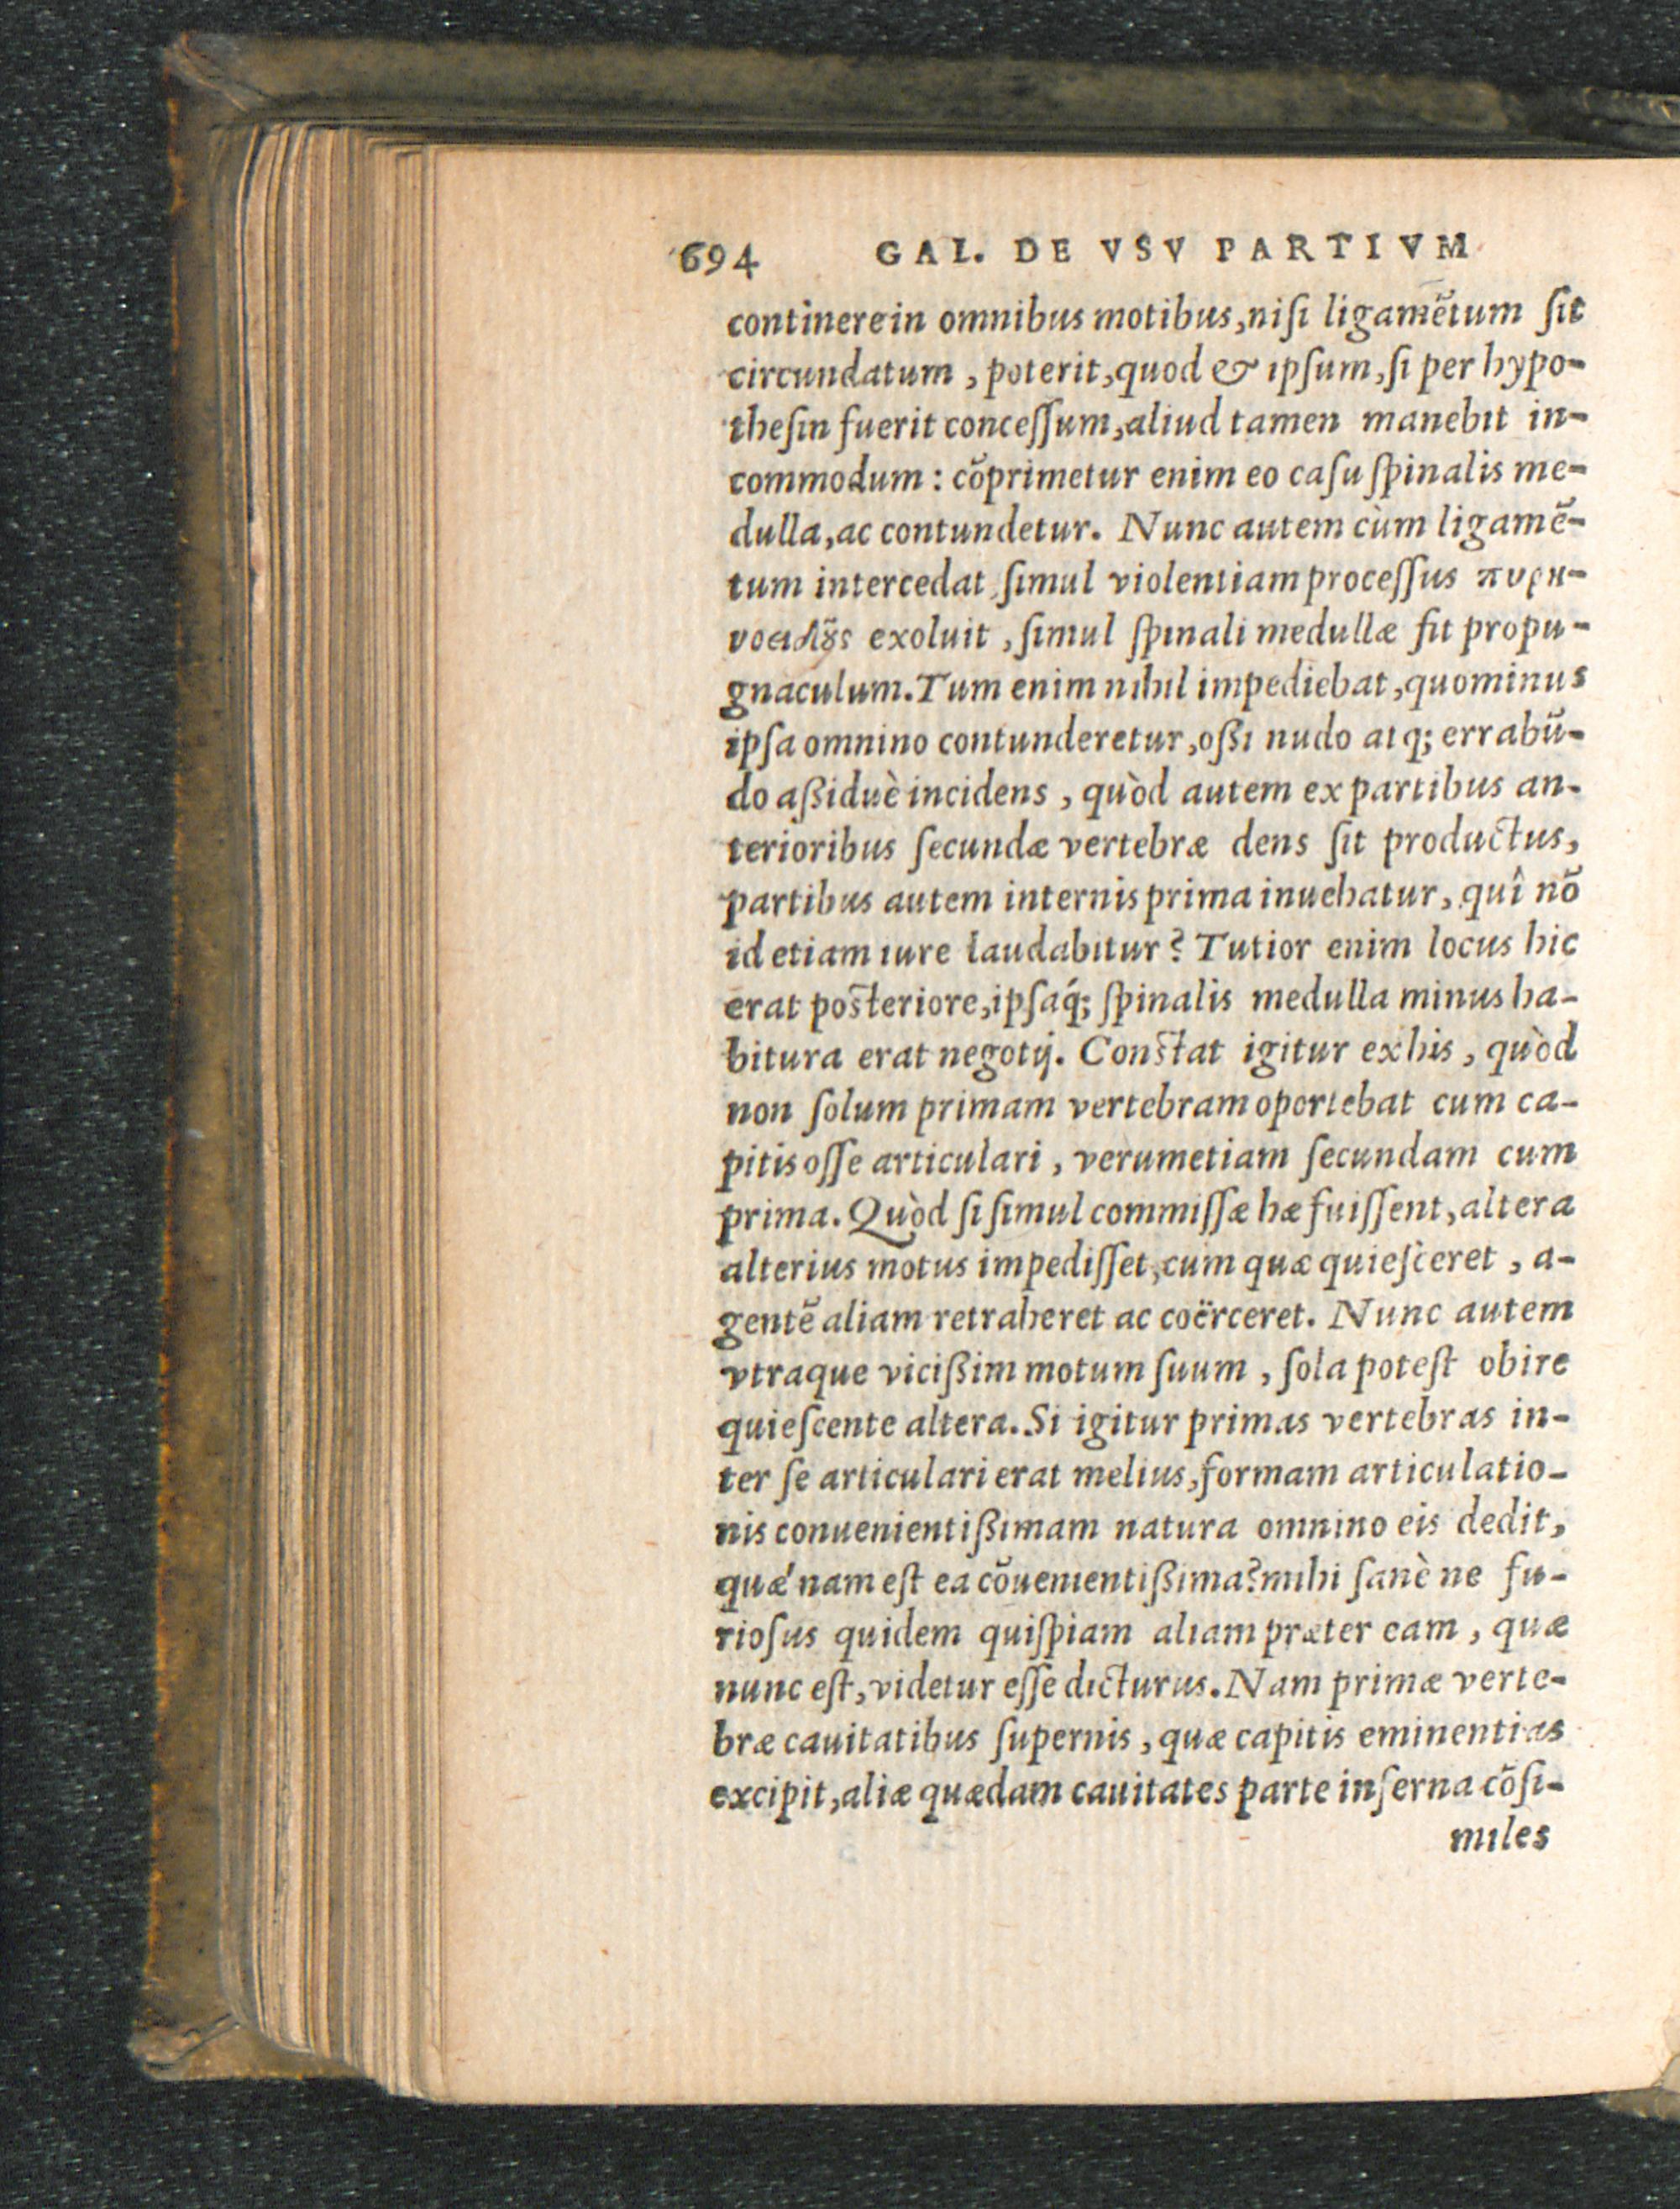 694 GAL. DE VSV PARTIVM
continere in omnibus motibus, niſi ligamẽtum ſit
circundatum, poterit, quod & ipſum, ſi per hypo-
theſin fuerit conceſſum, aliud tamen manebit in-
commodum: cõprimetur enim eo caſu ſpinalis me-
dulla, ac contundetur. Nunc autem cùm ligamẽ-
tum intercedat ſimul violentiam proceſſus πυρη-
νοειδοῦς exoluit, ſimul ſpinali medullæ fit propu-
gnaculum. Tum enim nihil impediebat, quominus
ipſa omnino contunderetur, oßi nudo atq; errabũ-
do aßiduè incidens, quòd autem ex partibus an-
terioribus ſecundæ vertebræ dens ſit productus,
partibus autem internis prima inuehatur, quî nõ
id etiam iure laudabitur? Tutior enim locus hic
erat poſteriore, ipſaq́; ſpinalis medulla minus ha-
bitura erat negotij. Conſtat igitur ex his, quòd
non ſolum primam vertebram oportebat cum ca-
pitis oſſe articulari, verumetiam ſecundam cum
prima. Quòd ſi ſimul commiſſæ hæ fuiſſent, altera
alterius motus impediſſet, cum quæ quieſceret, a-
gentẽ aliam retraheret ac coërceret. Nunc autem
vtraque vicißim motum ſuum, ſola poteſt obire
quieſcente altera. Si igitur primas vertebras in-
ter ſe articulari erat melius, formam articulatio-
nis conuenientißimam natura omnino eis dedit,
quǽ nam eſt ea cõuenientißima? mihi ſanè ne fu-
rioſus quidem quiſpiam aliam præter eam, quæ
nunc eſt, videtur eſſe dicturus. Nam primæ verte-
bræ cauitatibus ſupernis, quæ capitis eminentias
excipit, aliæ quædam cauitates parte inferna cõſi-
miles